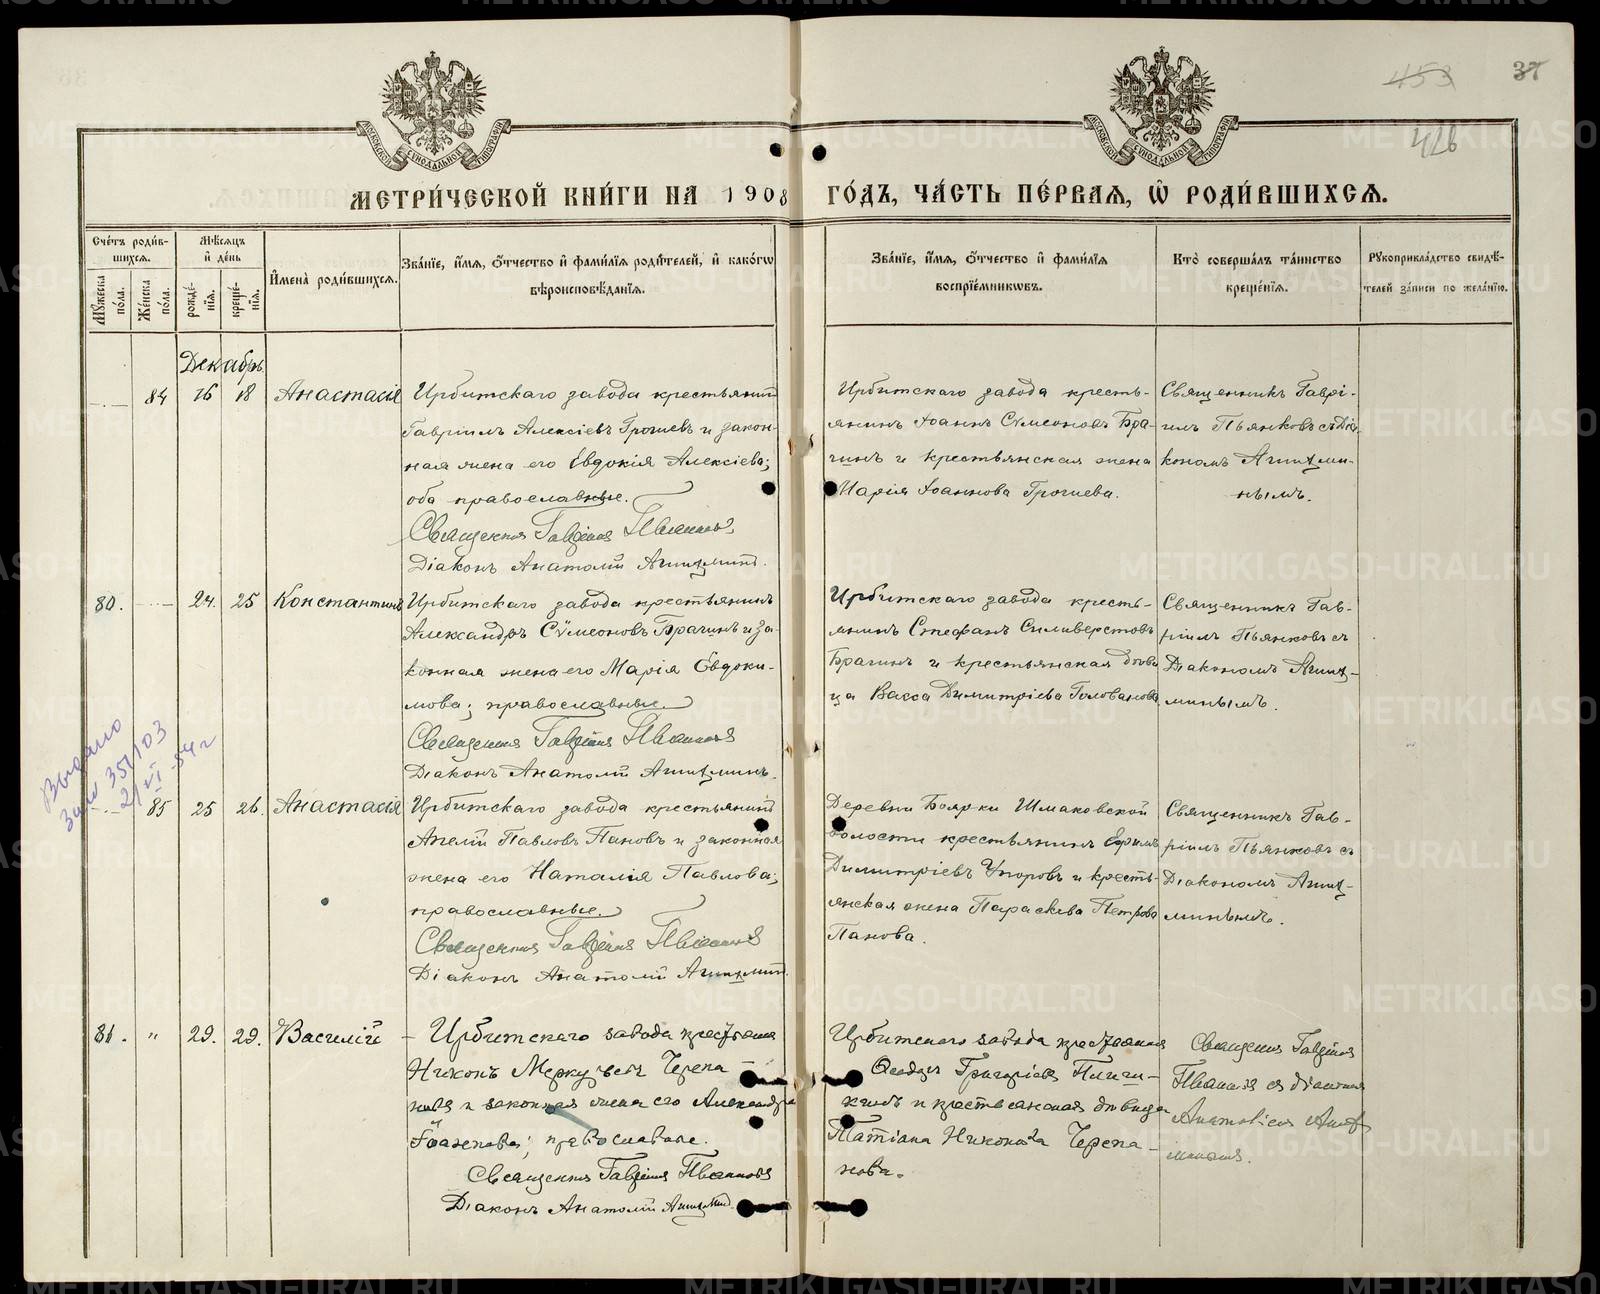 453
37
426
МОСКОВСКОЙ СѴНОДАЛЬНОЙ ТИПОГРАФІИ
МОСКОВСКОЙ СѴНОДАЛЬНОЙ ТИПОГРАФІИ
МЕТРИ́ЧЕСКОЙ КНИ́ГИ НА 1908 ГО́ДЪ, ЧА́СТЬ ПЕ́РВАѦ, Ѡ҆ РОДИ́ВШИХСѦ.
Сче́тъ роди́в-
шихсѧ.
Мꙋ́жеска по́ла.
Же́нска по́ла.
Мѣ́сѧцъ
и҆ де́нь
рожде́-
нїѧ.
креще́-
нїѧ.
И҆мена̀ роди́вшихсѧ.
Зва́нїе, и҆́мѧ, ѻ҆́тчество и҆ фами́лїѧ роди́телей, и҆ како́гѡ
вѣроисповѣ́данїѧ.
Зва́нїе, и҆́мѧ, ѻ҆́тчество и҆ фами́лїѧ
воспрїе́мникѡвъ.
Кто̀ соверша́лъ та́инство
креще́нїѧ.
Рꙋкоприкла́дство свидѣ́-
телей за́писи по жела́нїю.
Декабрь
84 16 18 Анастасія
Ирбитскаго завода крестьянинъ
Гавріилъ Алексіевъ Грошевъ и закон-
ная жена его Евдокія Алексіева;
оба православные.
Священникъ Гавріилъ Пьянковъ
Діаконъ Анатолій
Ирбитскаго завода кресть-
янинъ Іоаннъ Сѵмеоновъ Бра-
гинъ и крестьянская жена
Марія Іоаннова Грошева.
Священникъ Гаврі-
илъ Пьянковъ съ Діа-
кономъ
нымъ.
80. 24. 25 Константинъ
Ирбитскаго завода крестьянинъ
Александръ Сѵмеоновъ Брагинъ и за-
конная жена его Марія Евдоки-
мова; православные.
Священникъ Гавріилъ Пьянковъ
Діаконъ Анатолій
Ирбитскаго завода кресть-
янинъ Стефанъ Силиверстовъ
Брагинъ и крестьянская дѣви-
ца Васса Димитріева Голованова
Священникъ Гав-
ріилъ Пьянковъ съ
Діакономъ
минымъ.
Выдано
351/103
21/VI-54 г
85 25 26. Анастасія
Ирбитскаго завода крестьянинъ
Павловъ Пановъ и законная
жена его Наталія Павлова;
православные.
Священникъ Гавріилъ Пьянковъ
Діаконъ Анатолій
Деревни Боярки Шмаковской
волости крестьянинъ Ефимъ
Димитріевъ Упоровъ и кресть-
янская жена Параскева Петрова
Панова.
Священникъ Гав-
ріилъ Пьянковъ съ
Діакономъ
минымъ.
81. " 29. 29. Василій
Ирбитскаго завода крестьянинъ
Никонъ Меркурьевъ Черепа-
новъ и законная жена его Александра
православные.
Священникъ Гавріилъ Пьянковъ
Діаконъ Анатолій
Ирбитскаго завода крестьянинъ
Ѳеодоръ Григоріевъ
и крестьянская дѣвица
Татіана Никонова Черепа-
нова.
Священникъ Гавріилъ
Пьянковъ съ діакономъ
Анатоліемъ
минымъ.
METRIKI.GASO-URAL.RU